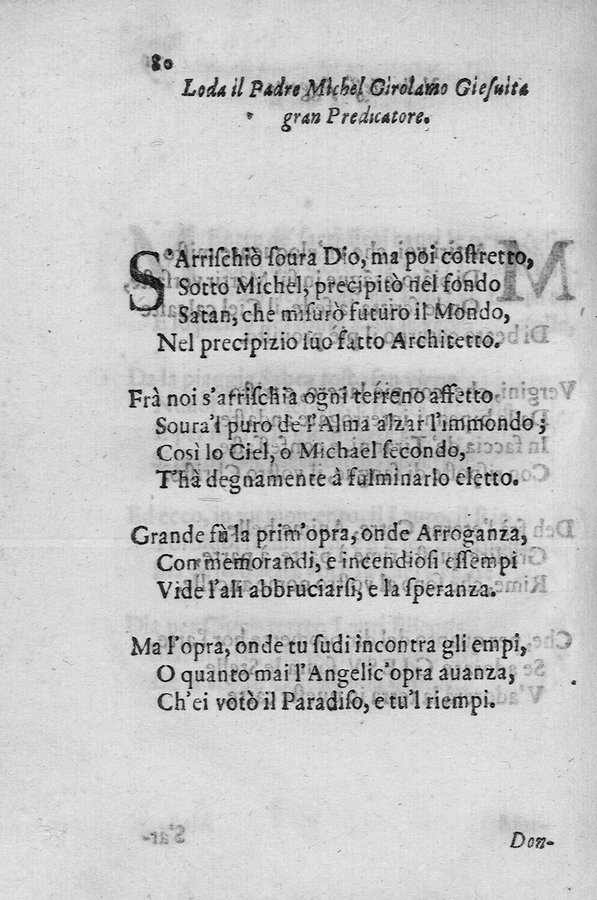 80
Loda il Padre Michel Girolamo Gieſuita
gran Predicatore.
S'Arriſchiò ſoura Dio, ma poi coſtretto,
Sotto Michel, precipitò nel fondo
Satan, che miſurò futuro il Mondo,
Nel precipizio ſuo fatto Architetto.
Frà noi s'arriſchia ogni terreno affetto
Soura'l puro de l'Alma alzar l'immondo;
Così lo Ciel, o Michael ſecondo,
T'hà degnamente à fulminarlo eletto.
Grande fù la prim'opra, onde Arroganza,
Con memorandi, e incendioſi eſſempi
Vide l'ali abbruciarſi, e la ſperanza.
Ma l'opra, onde tu ſudi incontra gli empi,
O quanto mai l'Angelic'opra auanza,
Ch'ei votò il Paradiſo, e tu'l riempi.
Don-